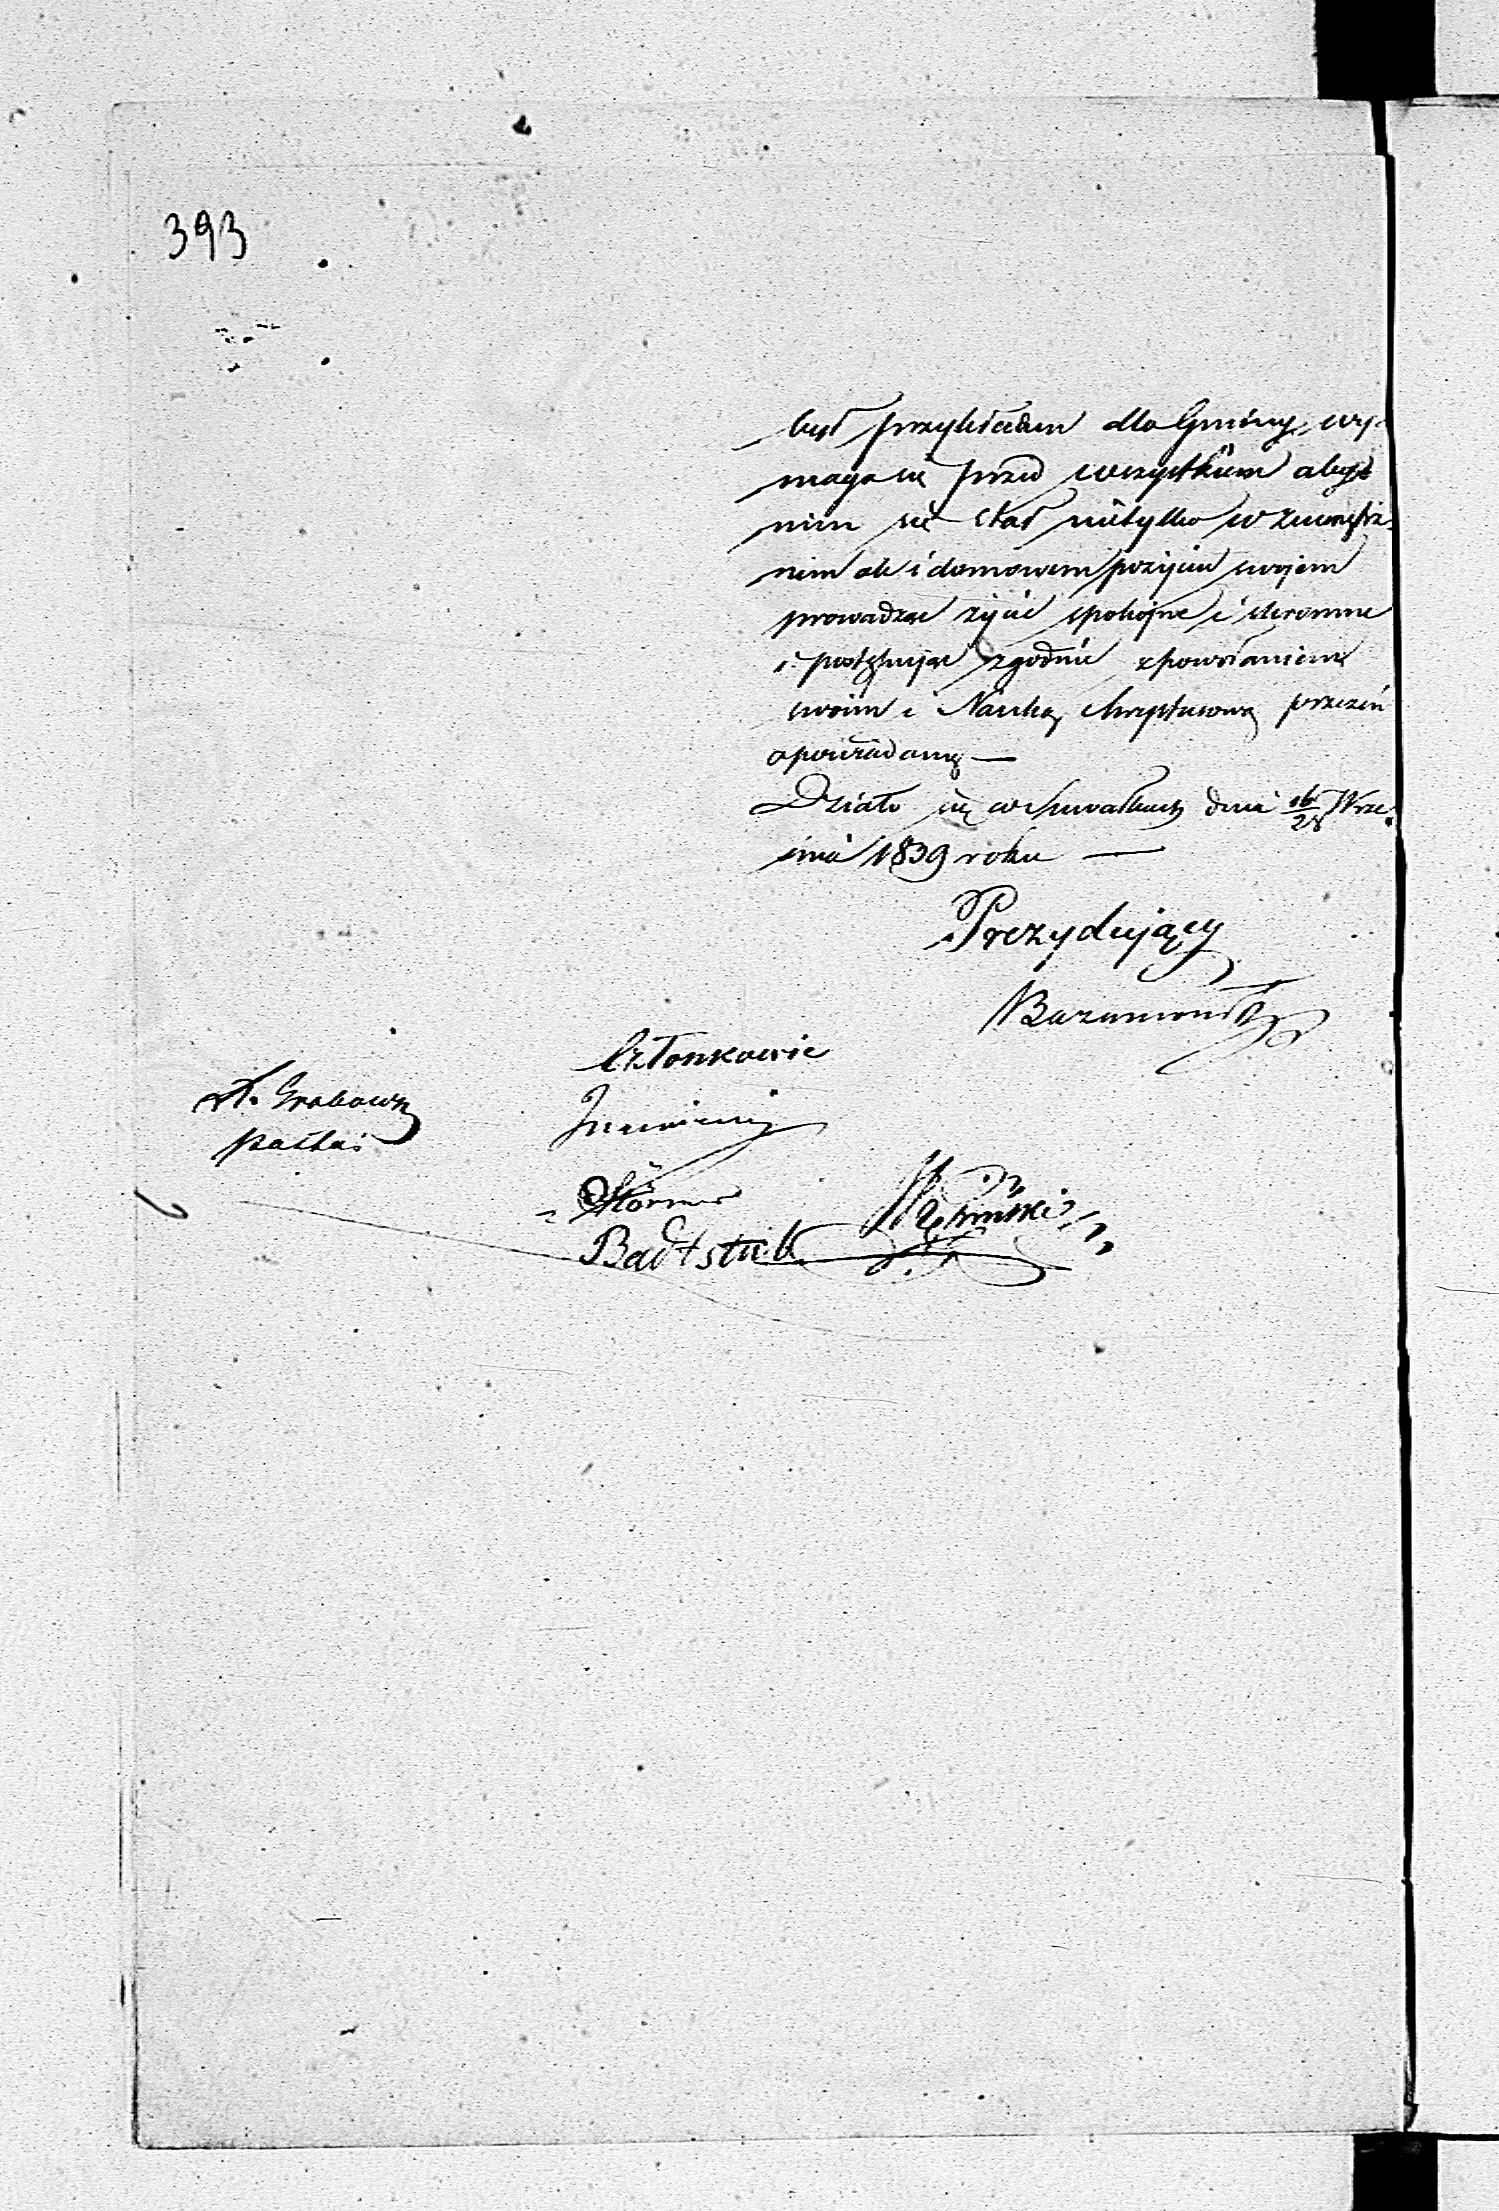 393
był przykładem dla Gminy, wy-
maga się przed wszystkiem aby
nim się stał nietylko w zewnętrz-
nim ale i domowem pożyciu swojem
prowadząc życie spokojne i skromne
i postępując zgodnie z powołaniem
swoim i Nauką Chrystusową przezeń
opowiadaną —
Działo się w Suwałkach dnia 16/28 Wrze-
śnia 1839 roku —
Prezydujący
Członkowie
A. Grabows